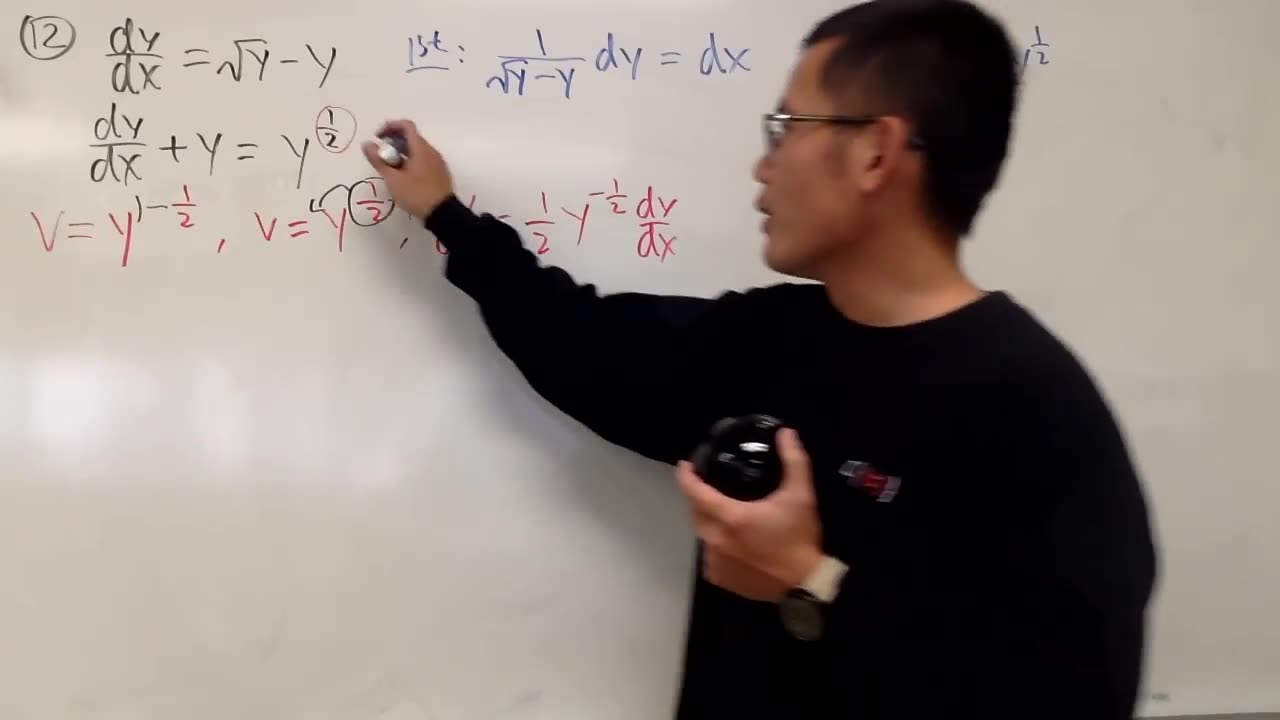 ⑫ dy/dx = √y - y 1st: 1/(√y - y) dy = dx y^(1/2)
dy/dx + y = y^(1/2)
v = y^(1 - 1/2), v = y^(1/2), = 1/2 y^(-1/2) dy/dx